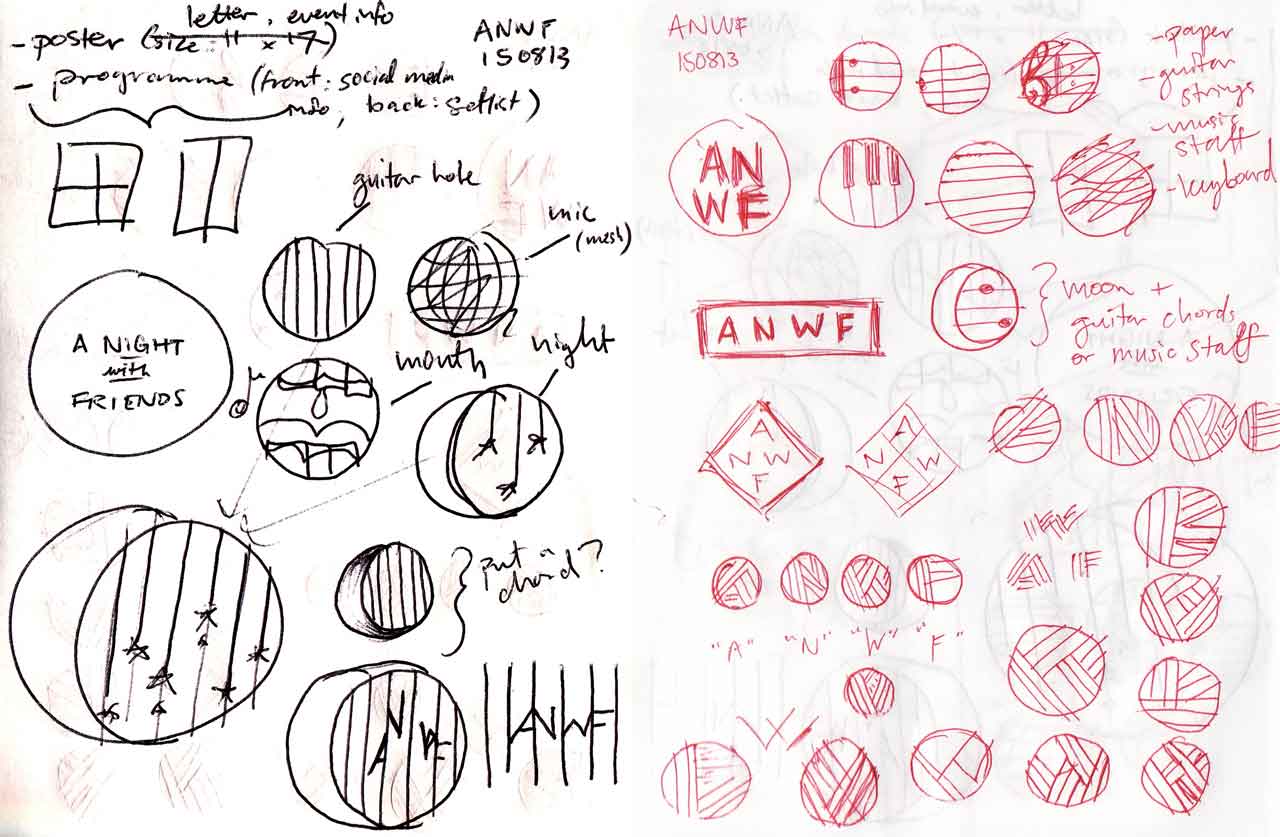 letter, event info
- poster (size: 11 x 17)
ANWF
150813
- programme (front: social media
info, back: setlist)
guitar hole
mic
(mesh)
A NIGHT
with
FRIENDS
mouth
night
put
chord?
A N W F
ANWF
ANWF
150813
- paper
- guitar
strings
- music
staff
- keyboard
AN
WF
ANWF
moon +
guitar chords
or music staff
A
N W
F
A
N W
F
"A" "N" "W" "F"